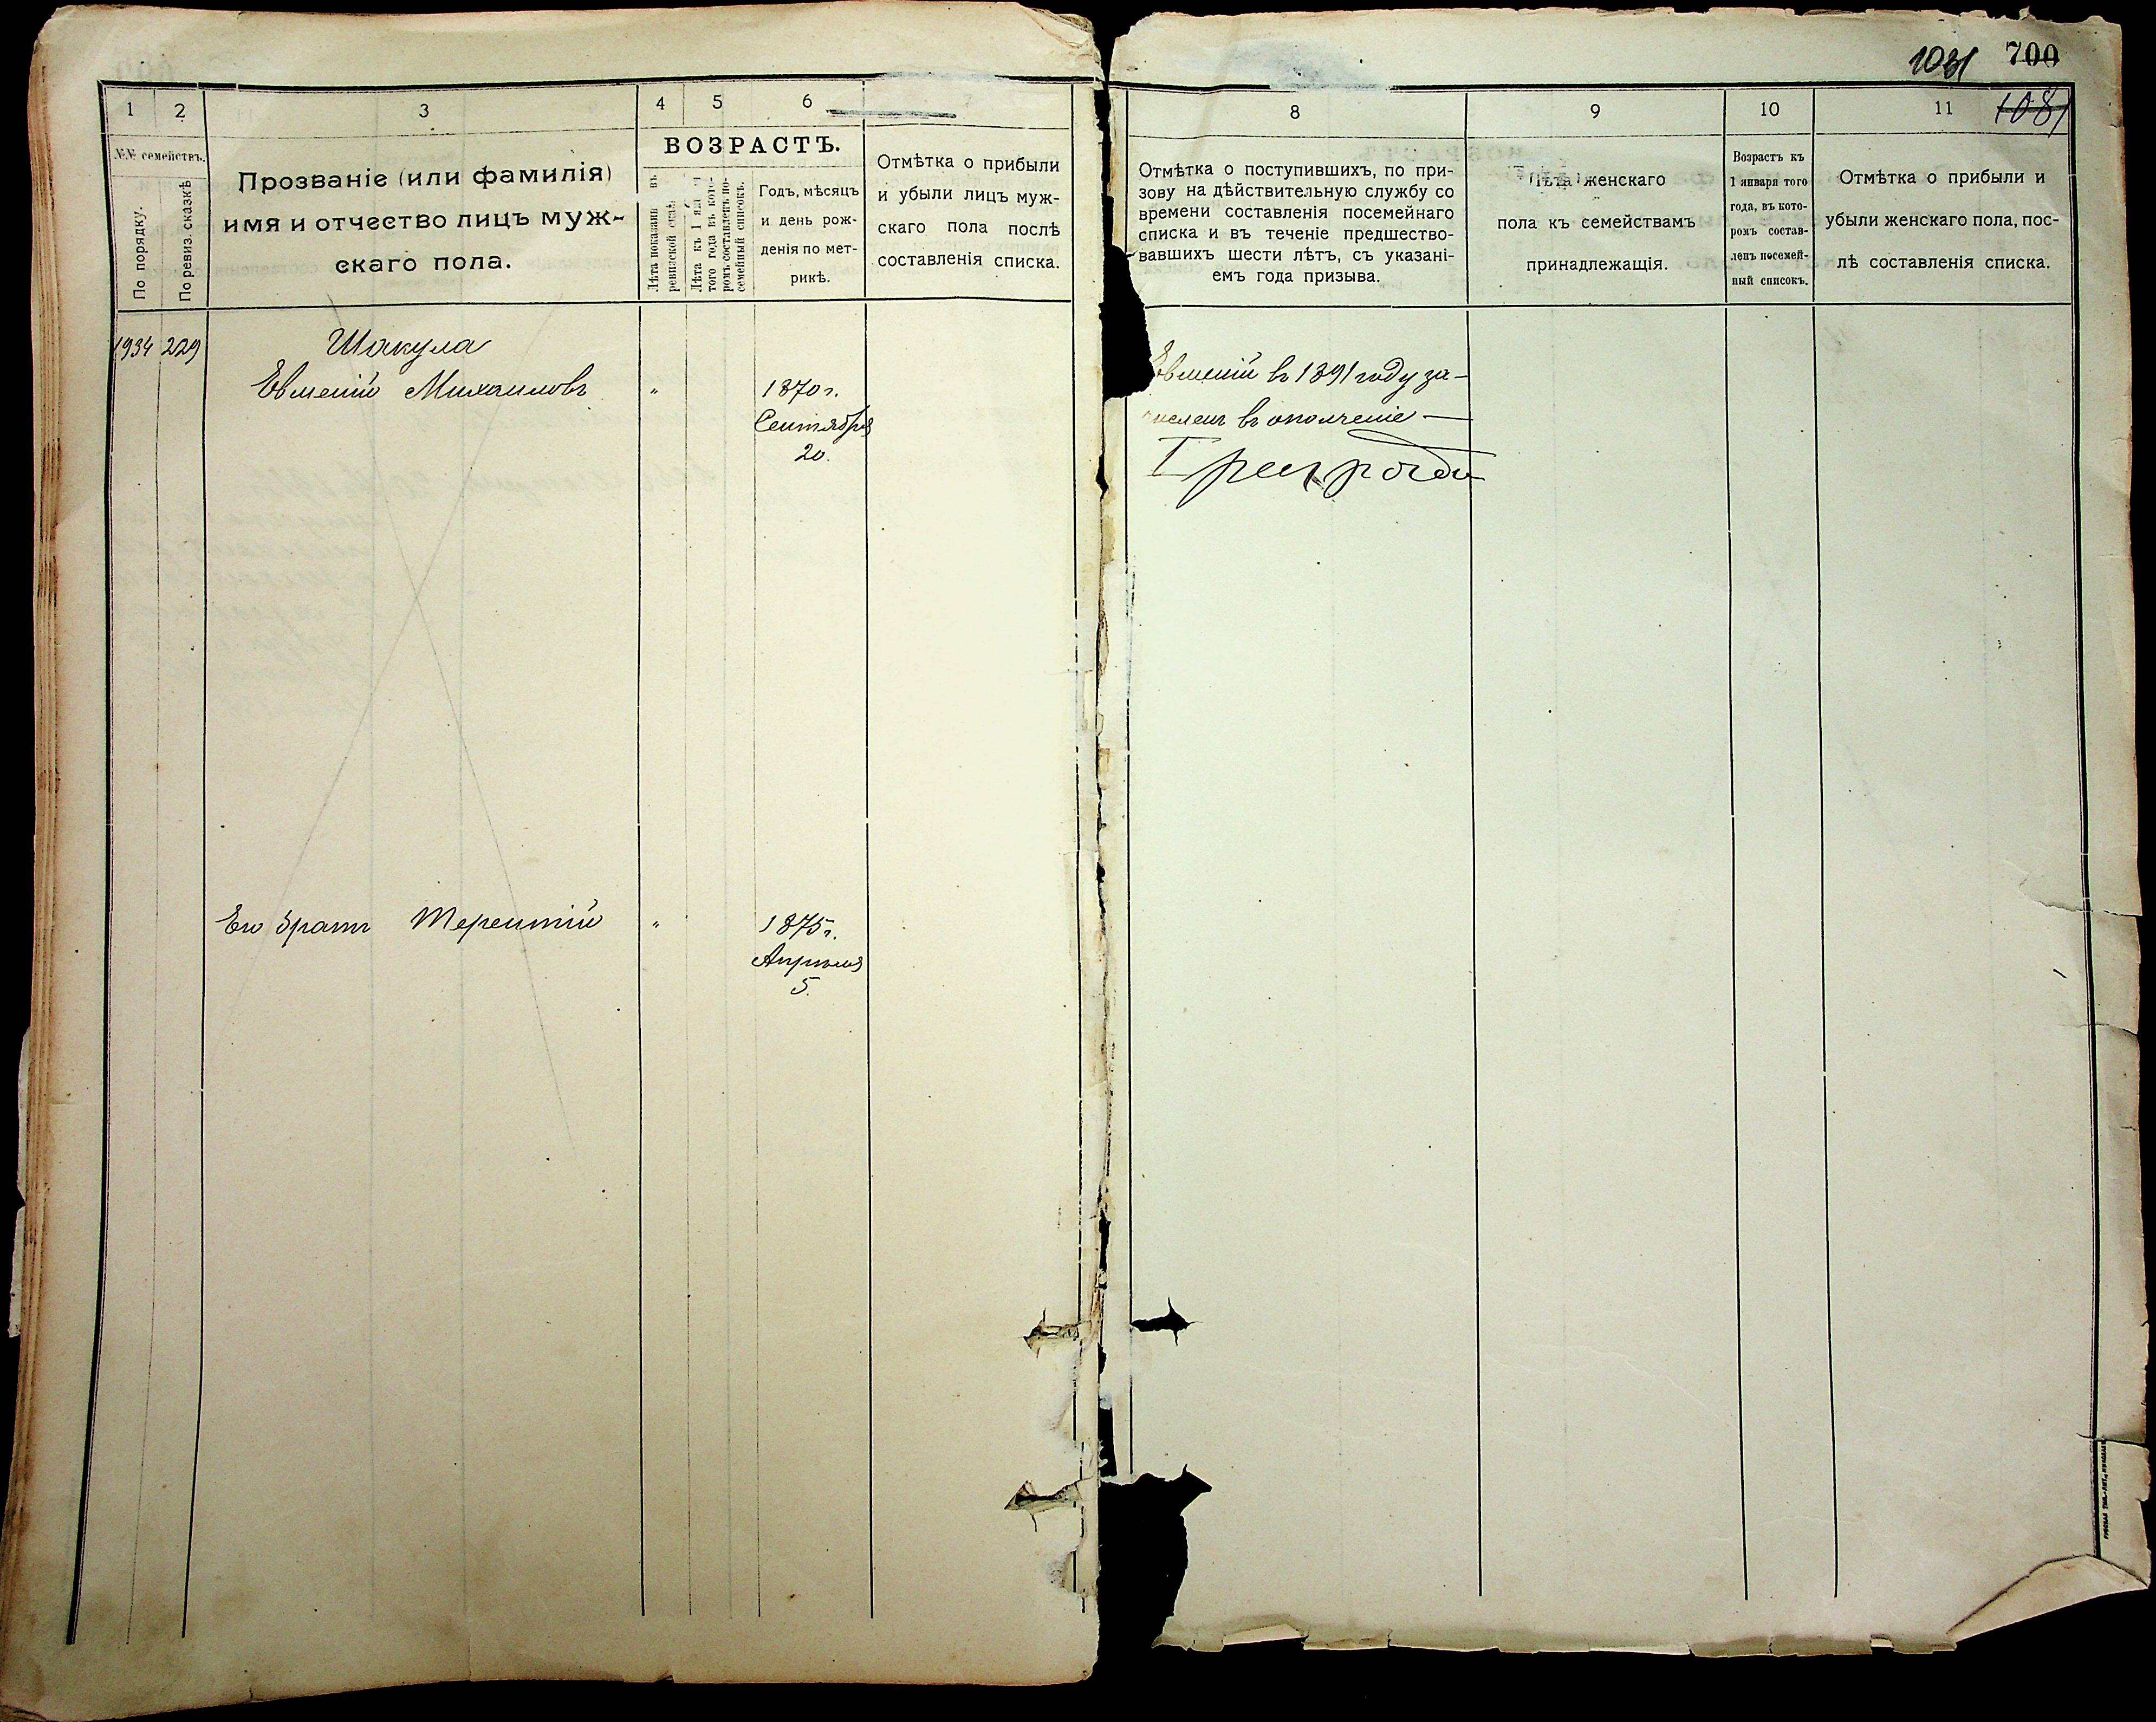 1031 700
1081
1 2 3 4 5 6 7
№№ семействъ.
По порядку.
По ревиз. сказкѣ
Прозваніе (или фамилія)
имя и отчество лицъ муж-
скаго пола.
ВОЗРАСТЪ.
Лѣта показаны въ
ревизской сказ.
Лѣта къ 1 янв
того года въ кото-
ромъ составленъ по-
семейный списокъ.
Годъ, мѣсяцъ
и день рож-
денія по мет-
рикѣ.
Отмѣтка о прибыли
и убыли лицъ муж-
скаго пола послѣ
составленія списка.
1934 229 Шакула
Евменій Михаиловъ „ 1870 г.
Сентября
20.
Его братъ Терентій „ 1875 г.
Апрѣля
5.
8 9 10 11
Отмѣтка о поступившихъ, по при-
зову на дѣйствительную службу со
времени составленія посемейнаго
списка и въ теченіе предшество-
вавшихъ шести лѣтъ, съ указані-
емъ года призыва.
женскаго
пола къ семействамъ
принадлежащія.
Возрастъ къ
1 января того
года, въ кото-
ромъ состав-
ленъ посемей-
ный списокъ.
Отмѣтка о прибыли и
убыли женскаго пола, пос-
лѣ составленія списка.
Евменій въ 1891 году за-
численъ въ ополченіе
I разряда